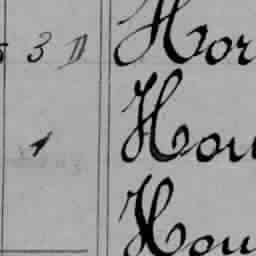 3 D Hor
1 Hou
Hou